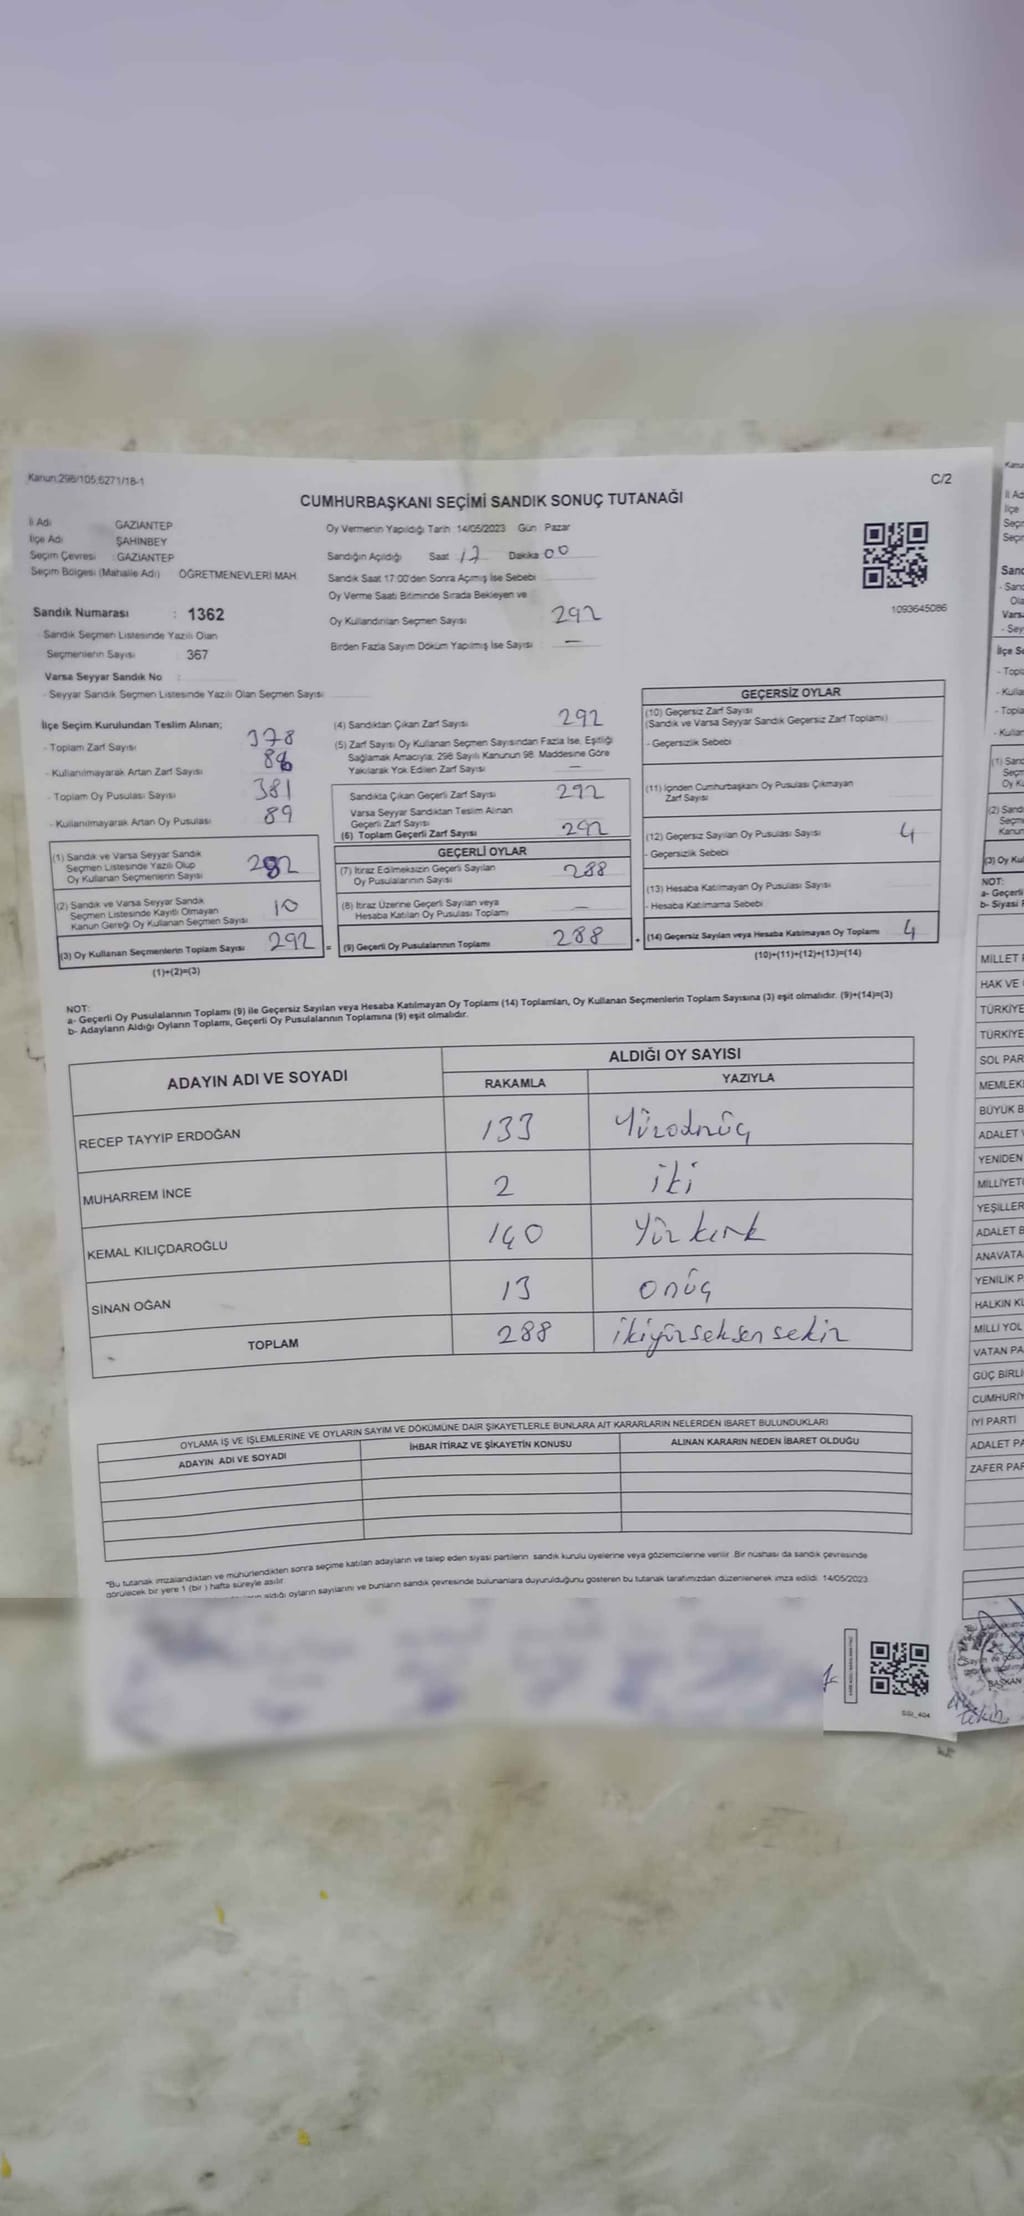 Kanun:298/105,6271/18-1
C/2
CUMHURBAŞKANI SEÇİMİ SANDIK SONUÇ TUTANAĞI
İl Adı GAZİANTEP
İlçe Adı ŞAHİNBEY
Seçim Çevresi : GAZİANTEP
Seçim Bölgesi (Mahalle Adı) ÖĞRETMENEVLERİ MAH.
Sandık Numarası : 1362
- Sandık Seçmen Listesinde Yazılı Olan
Seçmenlerin Sayısı 367
Varsa Seyyar Sandık No :
- Seyyar Sandık Seçmen Listesinde Yazılı Olan Seçmen Sayısı
Oy Vermenin Yapıldığı Tarih 14/05/2023 Gün Pazar
Sandığın Açıldığı Saat 17 Dakika 00
Sandık Saat 17:00'den Sonra Açılmış İse Sebebi
Oy Verme Saati Bitiminde Sırada Bekleyen ve
Oy Kullandırılan Seçmen Sayısı 292
Birden Fazla Sayım Döküm Yapılmış İse Sayısı —
1093645086
İlçe Seçim Kurulundan Teslim Alınan;
- Toplam Zarf Sayısı 378
- Kullanılmayarak Artan Zarf Sayısı 86
- Toplam Oy Pusulası Sayısı 381
- Kullanılmayarak Artan Oy Pusulası 89
(1) Sandık ve Varsa Seyyar Sandık
Seçmen Listesinde Yazılı Olup
Oy Kullanan Seçmenlerin Sayısı 282
(2) Sandık ve Varsa Seyyar Sandık
Seçmen Listesinde Kayıtlı Olmayan
Kanun Gereği Oy Kullanan Seçmen Sayısı 10
(3) Oy Kullanan Seçmenlerin Toplam Sayısı 292 =
(1)+(2)=(3)
(4) Sandıktan Çıkan Zarf Sayısı 292
(5) Zarf Sayısı Oy Kullanan Seçmen Sayısından Fazla İse, Eşitliği
Sağlamak Amacıyla; 298 Sayılı Kanunun 98. Maddesine Göre
Yakılarak Yok Edilen Zarf Sayısı —
Sandıkta Çıkan Geçerli Zarf Sayısı 292
Varsa Seyyar Sandıktan Teslim Alınan
Geçerli Zarf Sayısı
(6) Toplam Geçerli Zarf Sayısı 292
GEÇERLİ OYLAR
(7) İtiraz Edilmeksizin Geçerli Sayılan
Oy Pusulalarının Sayısı 288
(8) İtiraz Üzerine Geçerli Sayılan veya
Hesaba Katılan Oy Pusulası Toplamı —
(9) Geçerli Oy Pusulalarının Toplamı 288 +
GEÇERSİZ OYLAR
(10) Geçersiz Zarf Sayısı
(Sandık ve Varsa Seyyar Sandık Geçersiz Zarf Toplamı)
- Geçersizlik Sebebi
(11) İçinden Cumhurbaşkanı Oy Pusulası Çıkmayan
Zarf Sayısı
(12) Geçersiz Sayılan Oy Pusulası Sayısı 4
- Geçersizlik Sebebi
(13) Hesaba Katılmayan Oy Pusulası Sayısı
- Hesaba Katılmama Sebebi
(14) Geçersiz Sayılan veya Hesaba Katılmayan Oy Toplamı 4
(10)+(11)+(12)+(13)=(14)
NOT:
a- Geçerli Oy Pusulalarının Toplamı (9) ile Geçersiz Sayılan veya Hesaba Katılmayan Oy Toplamı (14) Toplamları, Oy Kullanan Seçmenlerin Toplam Sayısına (3) eşit olmalıdır. (9)+(14)=(3)
b- Adayların Aldığı Oyların Toplamı, Geçerli Oy Pusulalarının Toplamına (9) eşit olmalıdır.
ADAYIN ADI VE SOYADI ALDIĞI OY SAYISI
RAKAMLA YAZIYLA
RECEP TAYYİP ERDOĞAN 133 Yüzotuzüç
MUHARREM İNCE 2 iki
KEMAL KILIÇDAROĞLU 140 Yüz kırk
SİNAN OĞAN 13 onüç
TOPLAM 288 ikiyüz seksen sekiz
OYLAMA İŞ VE İŞLEMLERİNE VE OYLARIN SAYIM VE DÖKÜMÜNE DAİR ŞİKAYETLERLE BUNLARA AİT KARARLARIN NELERDEN İBARET BULUNDUKLARI
ADAYIN ADI VE SOYADI İHBAR İTİRAZ VE ŞİKAYETİN KONUSU ALINAN KARARIN NEDEN İBARET OLDUĞU
*Bu tutanak imzalandıktan ve mühürlendikten sonra seçime katılan adayların ve talep eden siyasi partilerin sandık kurulu üyelerine veya gözlemcilerine verilir. Bir nüshası da sandık çevresinde
görülecek bir yere 1 (bir) hafta süreyle asılır.
aldığı oyların sayılarını ve bunların sandık çevresinde bulunanlara duyurulduğunu gösteren bu tutanak tarafımızdan düzenlenerek imza edildi. 14/05/2023
MİLLET
HAK VE
TÜRKİYE
TÜRKİYE
SOL PAR
MEMLEK
BÜYÜK B
ADALET
YENİDEN
MİLLİYET
YEŞİLLER
ADALET B
ANAVATA
YENİLİK P
HALKIN K
MİLLİ YOL
VATAN PA
GÜÇ BİRLİ
CUMHURİY
İYİ PARTİ
ADALET PA
ZAFER PAR
BAŞKAN